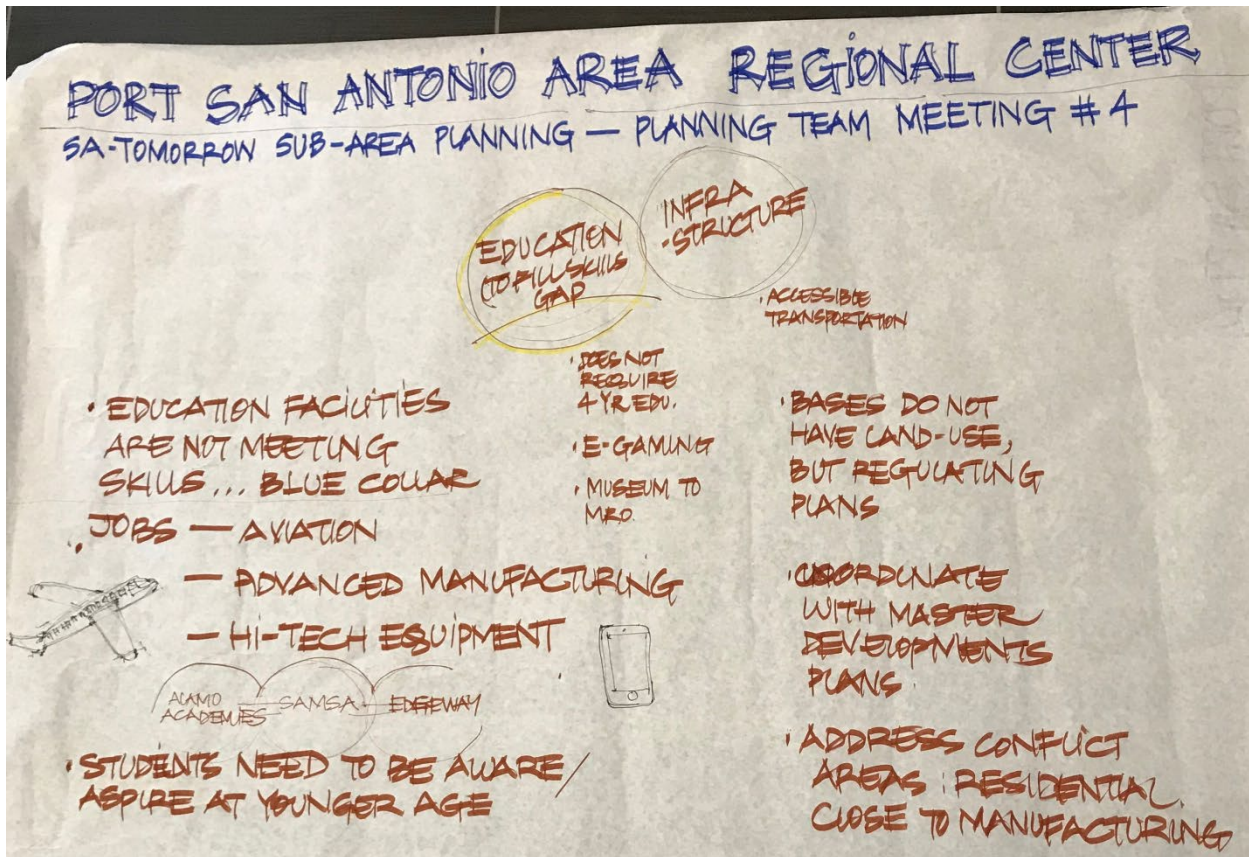 PORT SAN ANTONIO AREA REGIONAL CENTER
SA-TOMORROW SUB-AREA PLANNING — PLANNING TEAM MEETING #4
EDUCATION
(TO FILL SKILLS
GAP
INFRA
-STRUCTURE
· ACCESSIBLE
TRANSPORTATION
· DOES NOT
REQUIRE
4 YR EDU.
· E-GAMING
· MUSEUM TO
MRO.
· EDUCATION FACILITIES
ARE NOT MEETING
SKILLS... BLUE COLLAR
· JOBS — AVIATION
— ADVANCED MANUFACTURING
— HI-TECH EQUIPMENT
ALAMO
ACADEMIES
SAMSA
EDGEWAY
· STUDENTS NEED TO BE AWARE/
ASPIRE AT YOUNGER AGE
· BASES DO NOT
HAVE LAND-USE,
BUT REGULATING
PLANS
· COORDINATE
WITH MASTER
DEVELOPMENTS
PLANS.
· ADDRESS CONFLICT
AREAS : RESIDENTIAL
CLOSE TO MANUFACTURING